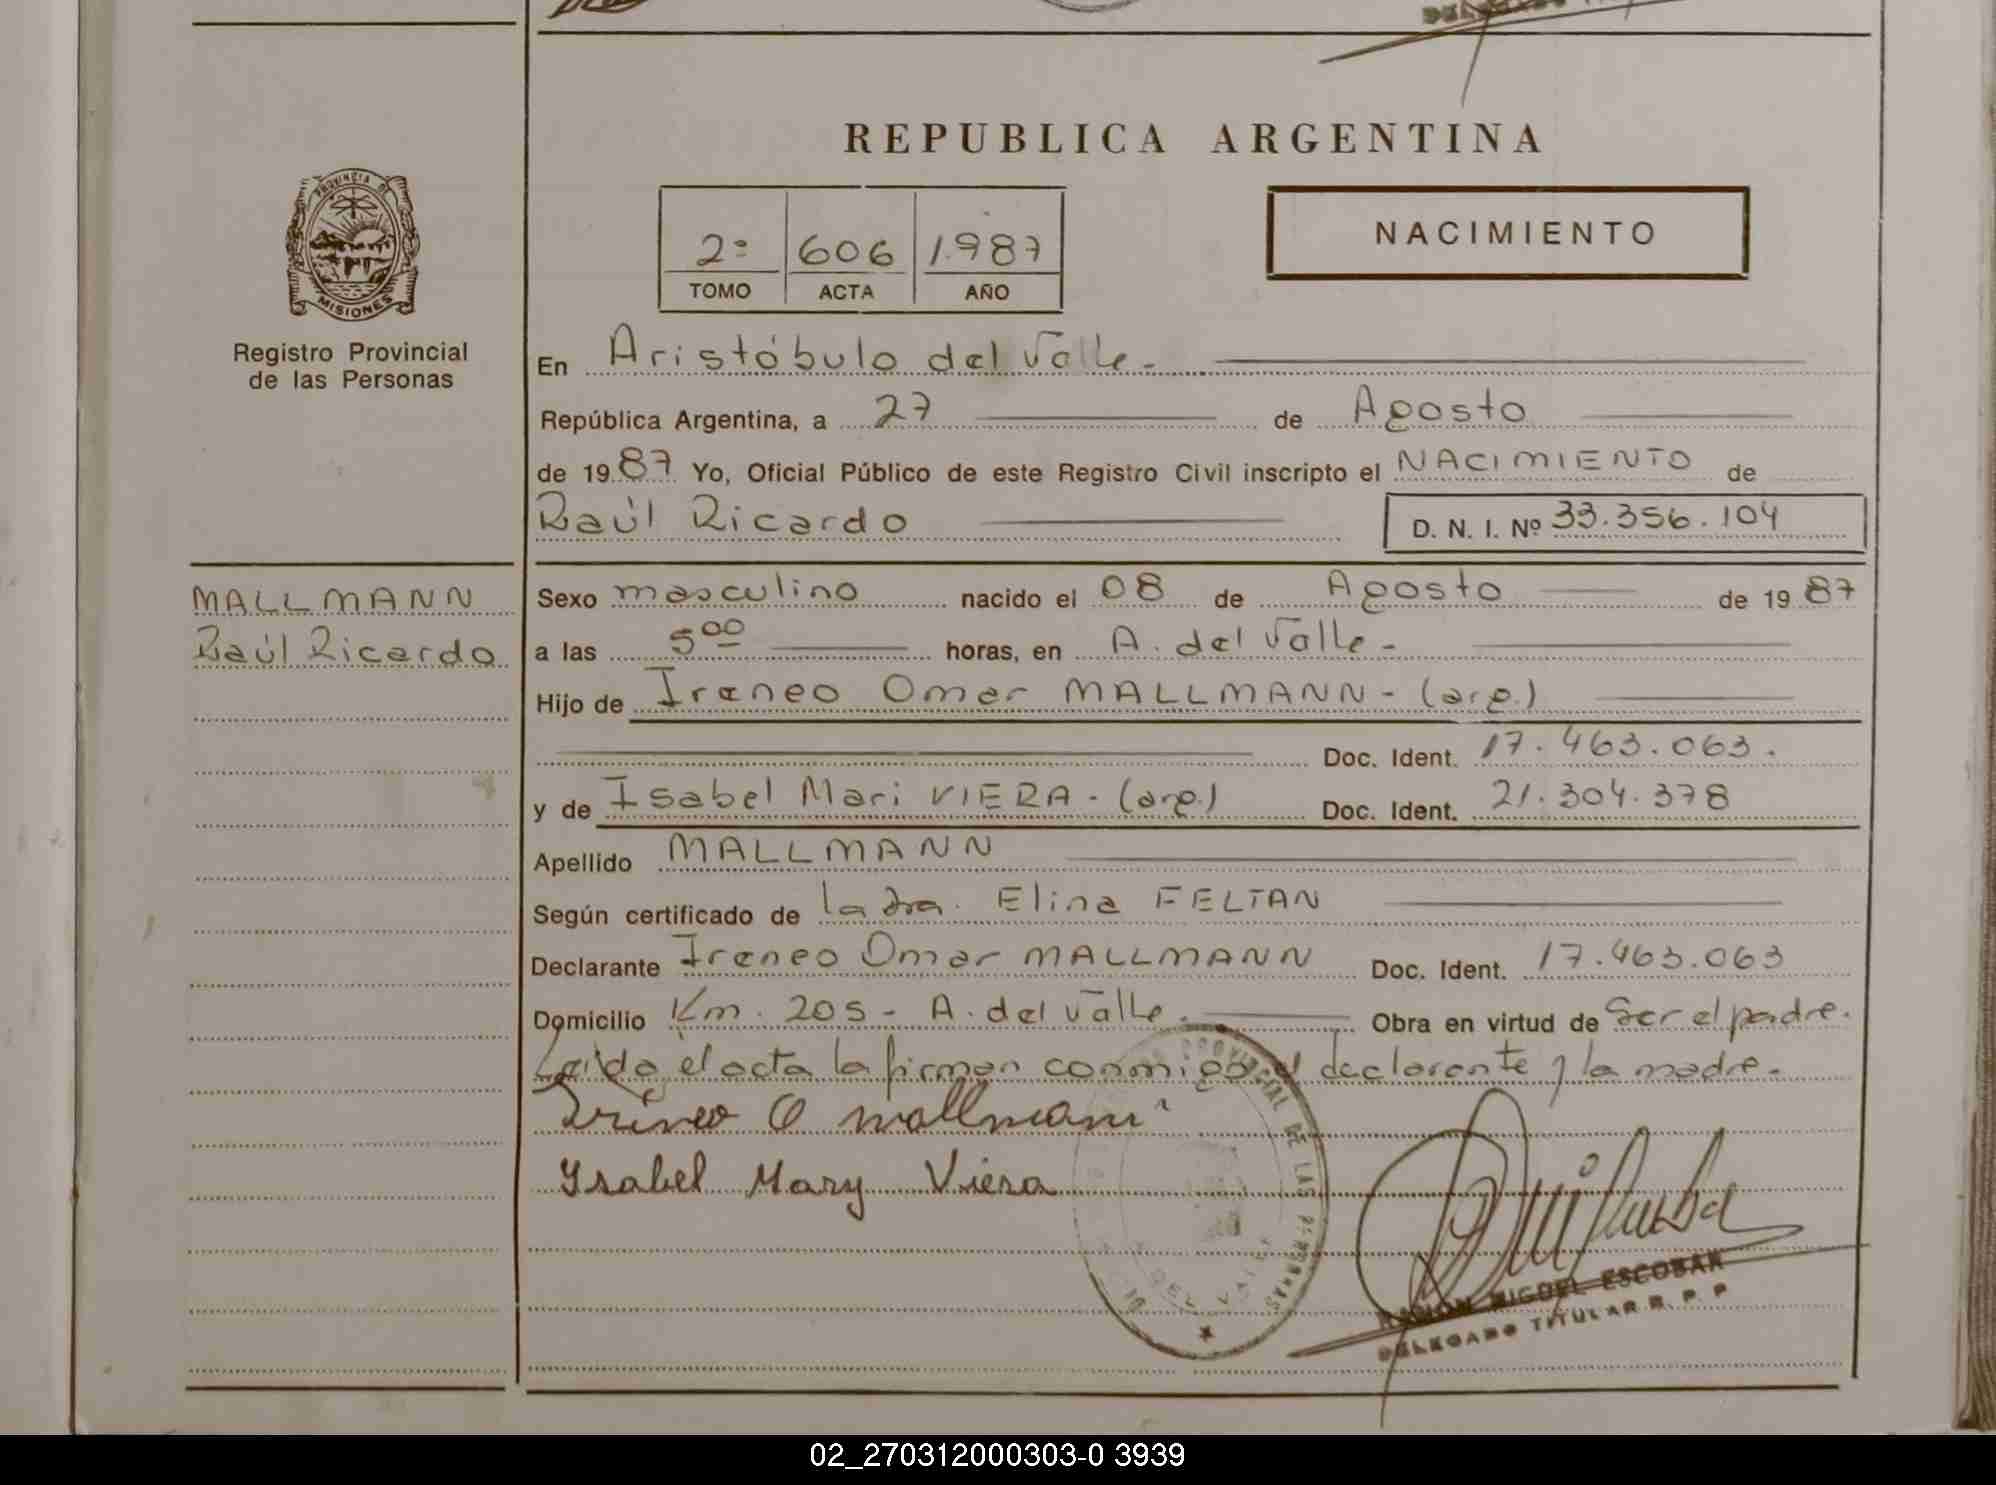 REPUBLICA ARGENTINA
PROVINCIA DE
MISIONES
Registro Provincial
de las Personas
2º 606 1.987
TOMO ACTA AÑO
NACIMIENTO
En Aristóbulo del Valle.-
República Argentina, a 27 de Agosto
de 1987 Yo, Oficial Público de este Registro Civil inscripto el NACIMIENTO de
Raúl Ricardo D. N. I. Nº 33.356.104
MALLMANN
Raúl Ricardo
Sexo masculino nacido el 08 de Agosto de 1987
a las 5 00 horas, en A. del Valle.-
Hijo de Ireneo Omar MALLMANN - (arg.)
Doc. Ident. 17.463.063.
y de Isabel Mari VIERA - (arg.) Doc. Ident. 21.304.378
Apellido MALLMANN
Según certificado de la dra. Elina FELTAN
Declarante Ireneo Omar MALLMANN Doc. Ident. 17.463.063
Domicilio Km. 205 - A. del Valle. Obra en virtud de Ser el padre.
Leída el acta la firman conmigo el declarante y la madre.
Irineo O mallmann
Ysabel Mary Viera
PROVINCIAL DE LAS PERSONAS
DEL VALLE
RAMON MIGUEL ESCOBAR
DELEGADO TITULAR R. P. P
02_270312000303-0 3939